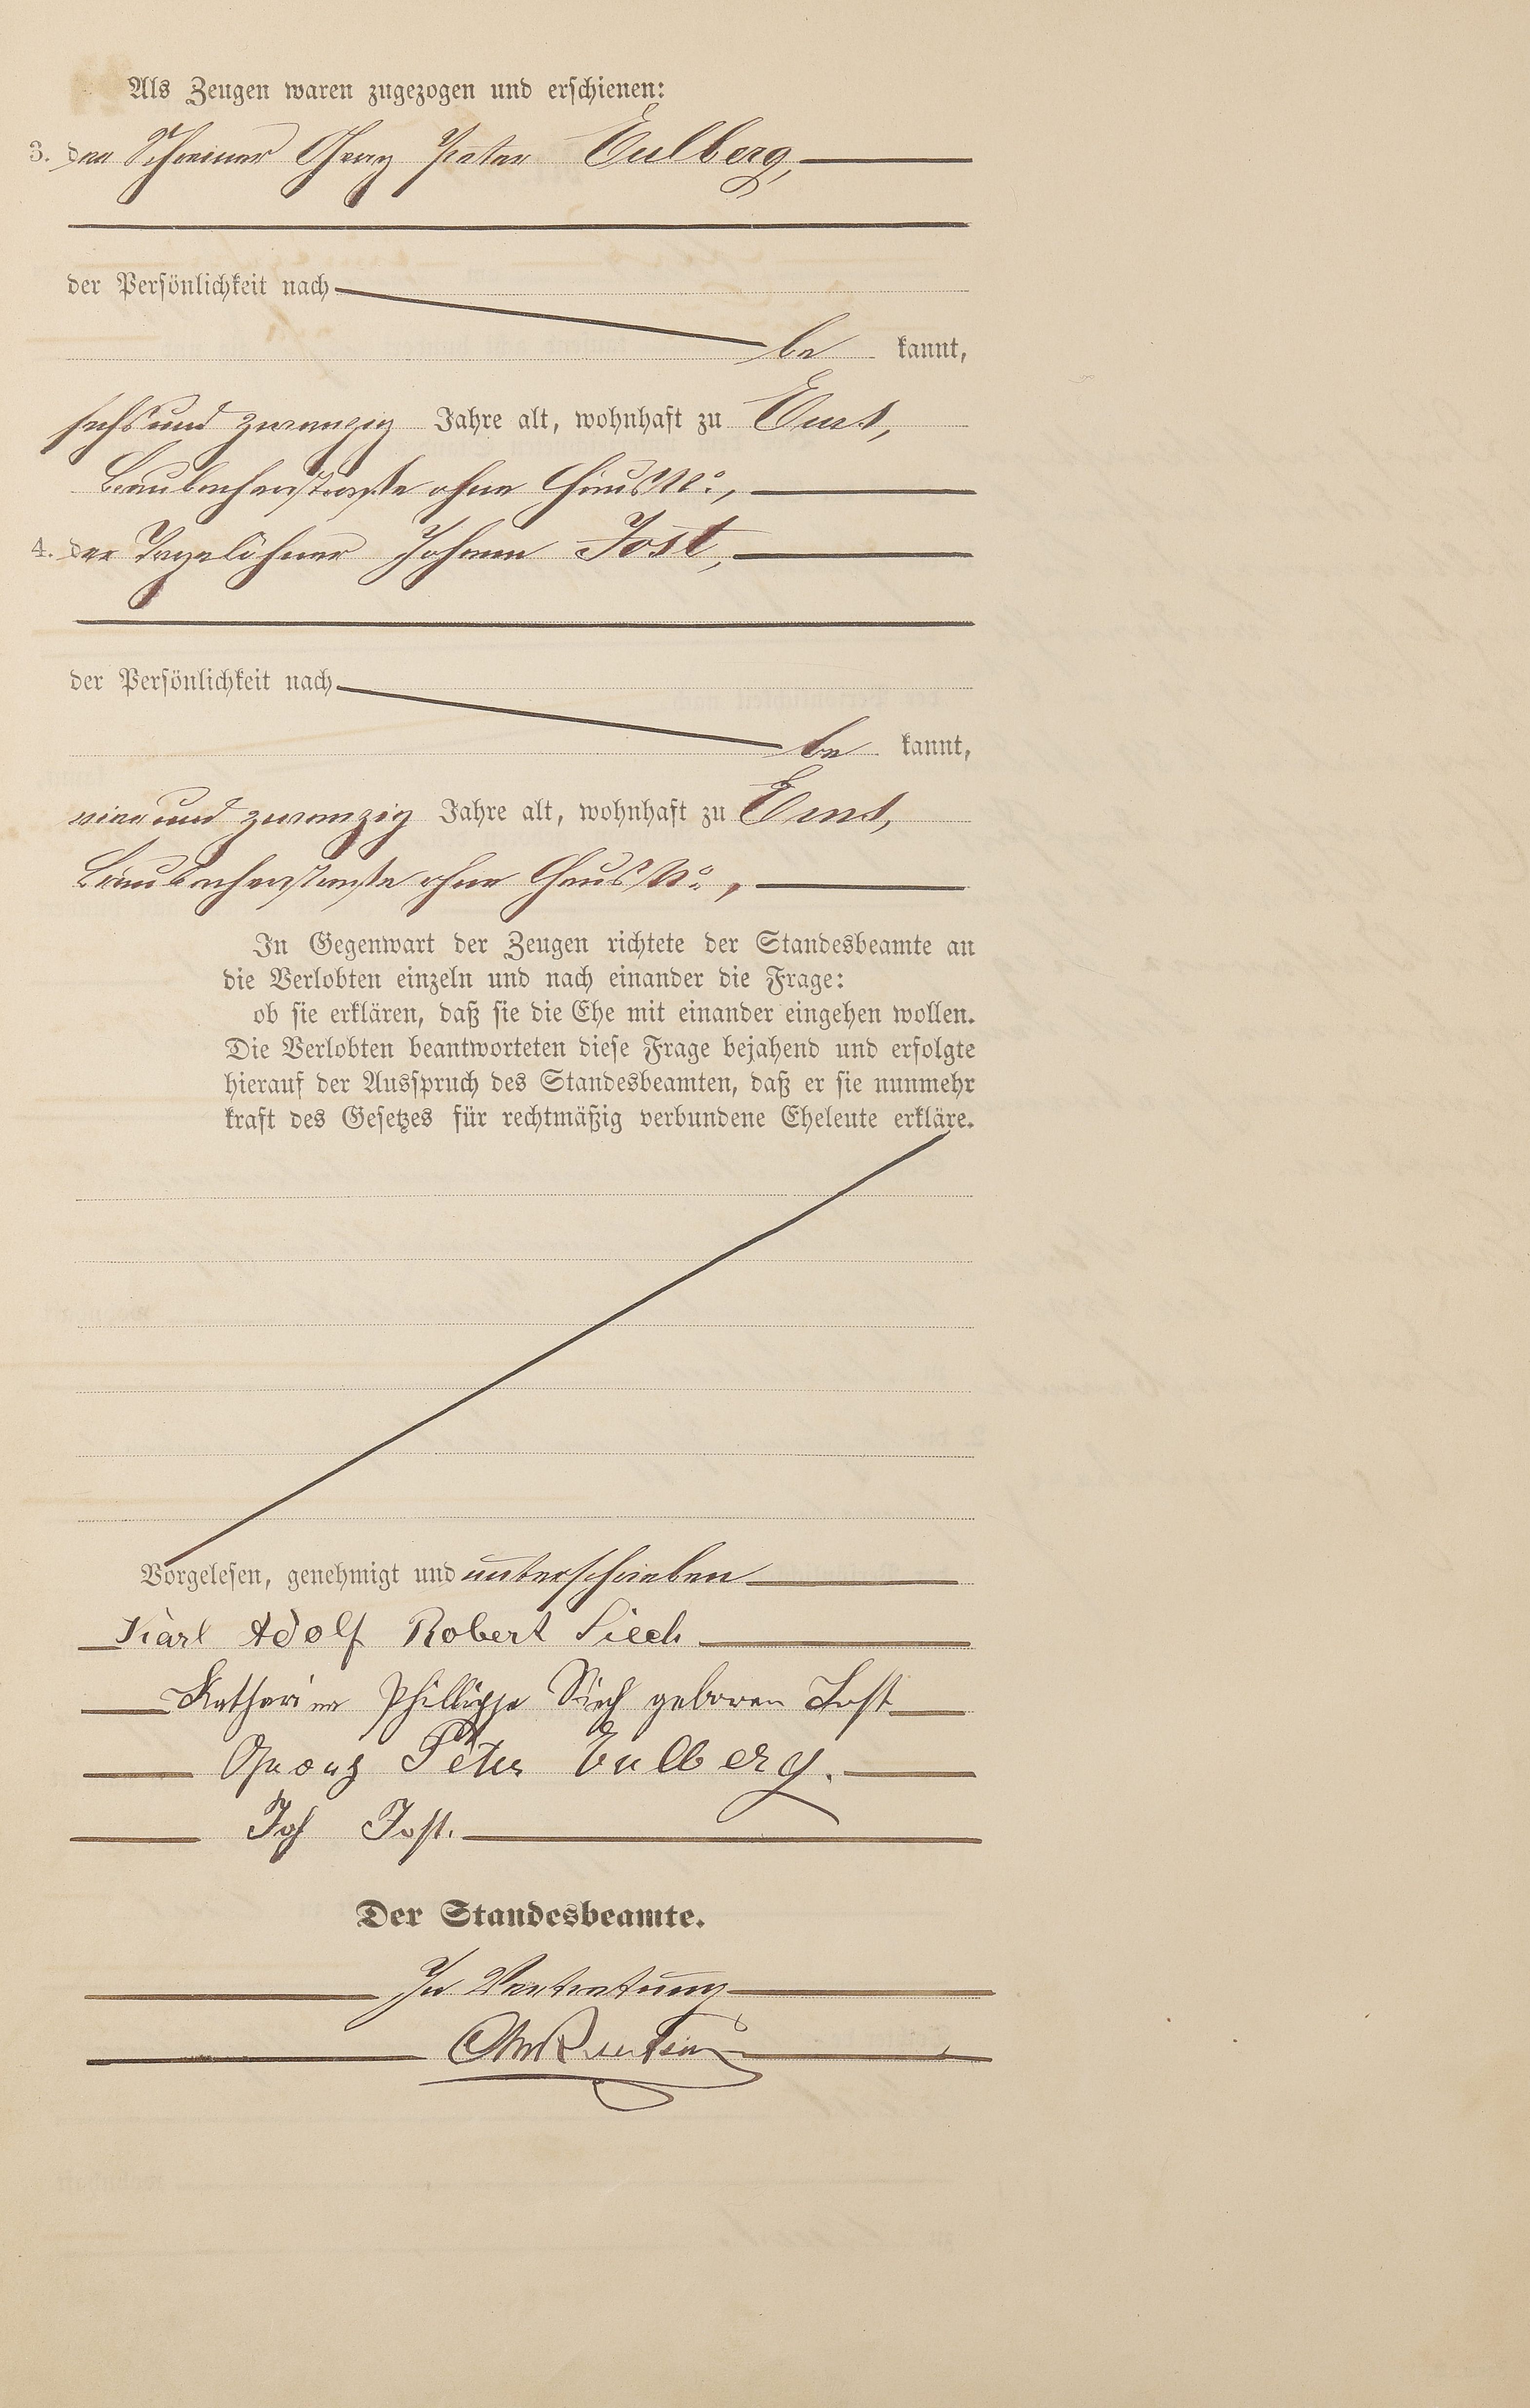 Als Zeugen waren zugezogen und erschienen:
3. der Schreiner Georg Peter Eulberg,
der Persönlichkeit nach
be kannt,
sechs und zwanzig Jahre alt, wohnhaft zu Ems,
Braubacherstraße ohne Haus No.,
4. der Tagelöhner Johann Jost,
der Persönlichkeit nach
be kannt,
vier und zwanzig Jahre alt, wohnhaft zu Ems,
Braubacherstraße ohne Haus No.,
In Gegenwart der Zeugen richtete der Standesbeamte an
die Verlobten einzeln und nach einander die Frage:
ob sie erklären, daß sie die Ehe mit einander eingehen wollen.
Die Verlobten beantworteten diese Frage bejahend und erfolgte
hierauf der Ausspruch des Standesbeamten, daß er sie nunmehr
kraft des Gesetzes für rechtmäßig verbundene Eheleute erkläre.
Vorgelesen, genehmigt und unterschrieben
Karl Adolf Robert Siech
Katharina Phillippe Siech geboren Jost
Georg Peter Eulberg.
Joh Jost.
Der Standesbeamte.
In Vertretung